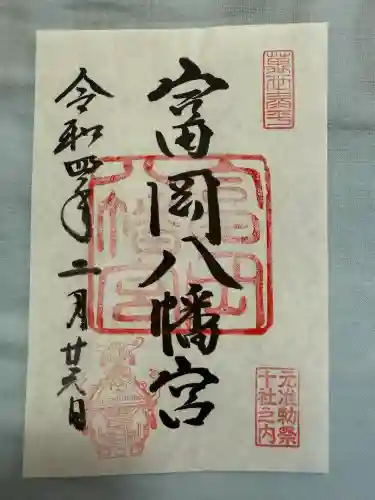 萬世泰平
富岡八幡宮
元准勅祭
十社之内
令和四年二月廿六日